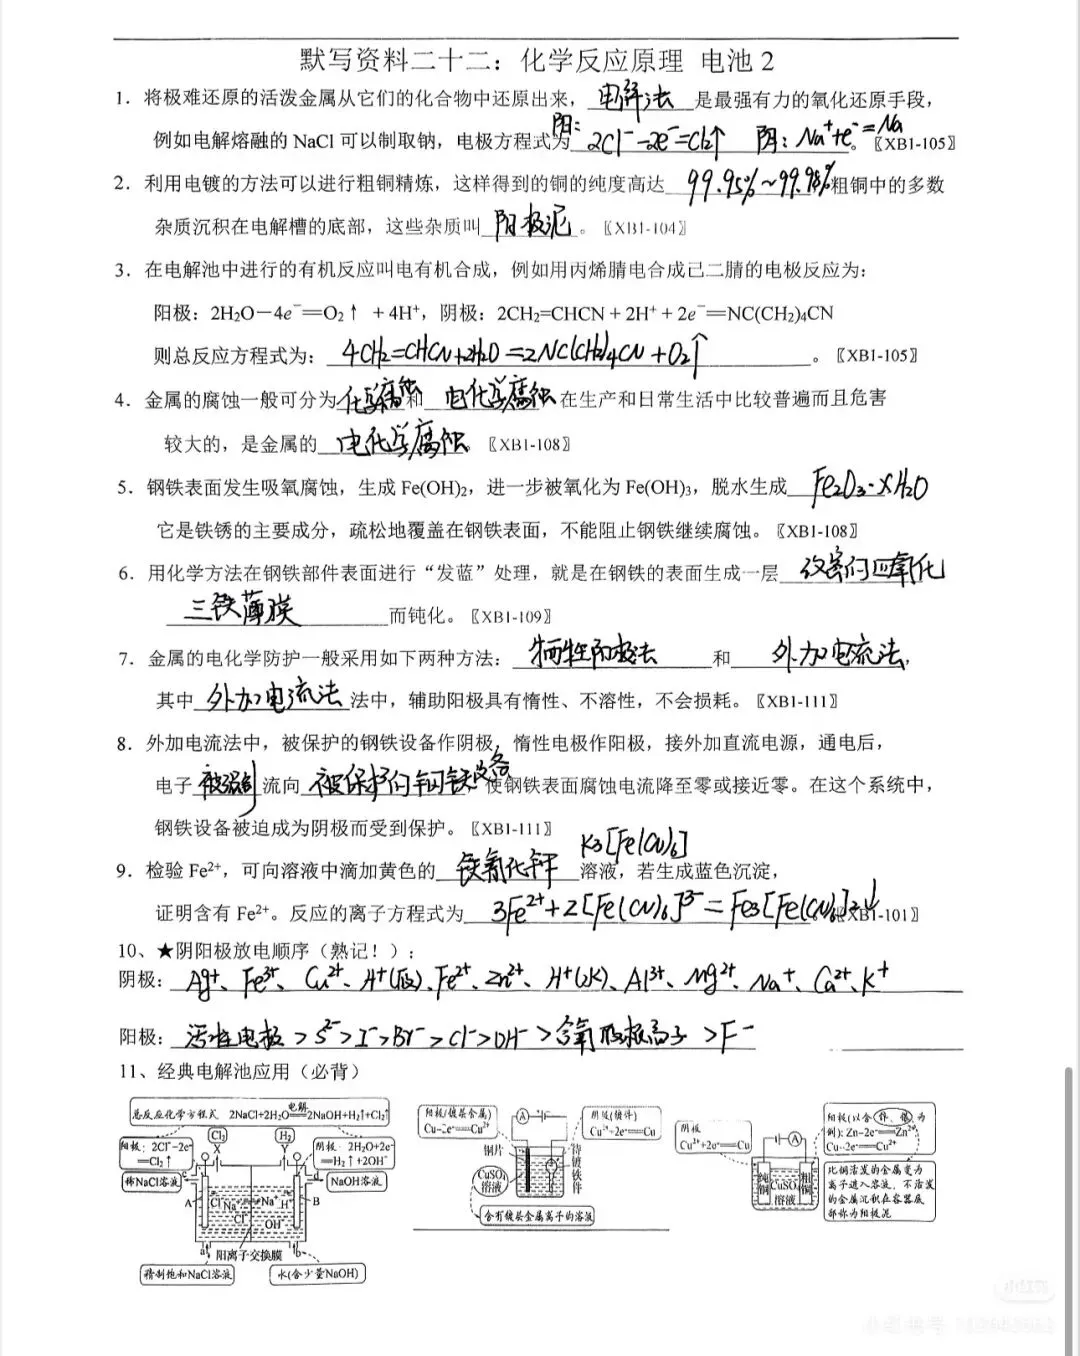 默写资料二十二：化学反应原理 电池 2
1．将极难还原的活泼金属从它们的化合物中还原出来，电解法是最强有力的氧化还原手段，
例如电解熔融的 NaCl 可以制取钠，电极方程式为阳：2Cl⁻-2e⁻=Cl₂↑ 阴：Na⁺+e⁻=Na。〖XB1-105〗
2．利用电镀的方法可以进行粗铜精炼，这样得到的铜的纯度高达99.95%~99.98%粗铜中的多数
杂质沉积在电解槽的底部，这些杂质叫阳极泥。〖XB1-104〗
3．在电解池中进行的有机反应叫电有机合成，例如用丙烯腈电合成己二腈的电极反应为：
阳极：2H₂O－4e⁻══O₂↑ + 4H⁺，阴极：2CH2=CHCN + 2H⁺ + 2e⁻══NC(CH2)₄CN
则总反应方程式为：4CH₂=CHCN+2H₂O=2NC(CH₂)₄CN+O₂↑。〖XB1-105〗
4．金属的腐蚀一般可分为化学腐蚀和电化学腐蚀 在生产和日常生活中比较普遍而且危害
较大的，是金属的电化学腐蚀。〖XB1-108〗
5．钢铁表面发生吸氧腐蚀，生成 Fe(OH)₂，进一步被氧化为 Fe(OH)₃，脱水生成Fe₂O₃·xH₂O
它是铁锈的主要成分，疏松地覆盖在钢铁表面，不能阻止钢铁继续腐蚀。〖XB1-108〗
6．用化学方法在钢铁部件表面进行“发蓝”处理，就是在钢铁的表面生成一层致密的四氧化
三铁薄膜而钝化。〖XB1-109〗
7．金属的电化学防护一般采用如下两种方法：牺牲阳极法和外加电流法，
其中外加电流法法中，辅助阳极具有惰性、不溶性，不会损耗。〖XB1-111〗
8．外加电流法中，被保护的钢铁设备作阴极，惰性电极作阳极，接外加直流电源，通电后，
电子被强制流向被保护的钢铁设备 使钢铁表面腐蚀电流降至零或接近零。在这个系统中，
钢铁设备被迫成为阴极而受到保护。〖XB1-111〗
K₃[Fe(CN)₆]
9．检验 Fe²⁺，可向溶液中滴加黄色的铁氰化钾溶液，若生成蓝色沉淀，
证明含有 Fe²⁺。反应的离子方程式为3Fe²⁺+2[Fe(CN)₆]³⁻=Fe₃[Fe(CN)₆]₂↓〖XB1-101〗
10、★阴阳极放电顺序（熟记！）：
阴极：Ag⁺、Fe³⁺、Cu²⁺、H⁺(酸)、Fe²⁺、Zn²⁺、H⁺(水)、Al³⁺、Mg²⁺、Na⁺、Ca²⁺、K⁺
阳极：活性电极>S²⁻>I⁻>Br⁻>Cl⁻>OH⁻>含氧酸根离子>F⁻
11、经典电解池应用（必背）
总反应化学方程式 2NaCl+2H₂O══电解══2NaOH+H₂↑+Cl₂↑
阳极：2Cl⁻-2e⁻
══Cl₂↑
Cl₂
X
H₂
Y
阴极：2H₂O+2e⁻
══H₂↑+2OH⁻
稀NaCl溶液
c
NaOH溶液
A
B
Cl⁻ Na⁺
Na⁺ H⁺
Cl⁻
OH⁻
a
阳离子交换膜
b
精制饱和NaCl溶液
水(含少量NaOH)
阳极(镀层金属)
Cu-2e⁻══Cu²⁺
A
阴极(镀件)
Cu²⁺+2e⁻══Cu
铜片
CuSO₄
溶液
待镀铁件
含有镀层金属离子的溶液
阴极
Cu²⁺+2e⁻══Cu
A
纯铜
CuSO₄
溶液
粗铜
阳极(以含锌、银为
例)：Zn-2e⁻══Zn²⁺
Cu-2e⁻══Cu²⁺
比铜活泼的金属变为
离子进入溶液，不活泼
的金属沉积在容器底
部称为阳极泥